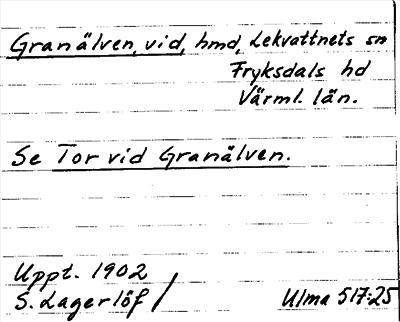 Granälven, vid, hmd, Lekvattnets sn
Fryksdals hd
Värml. län.
Se Tor vid Granälven.
Uppt. 1902
S. Lagerlöf /
Ulma 517:25